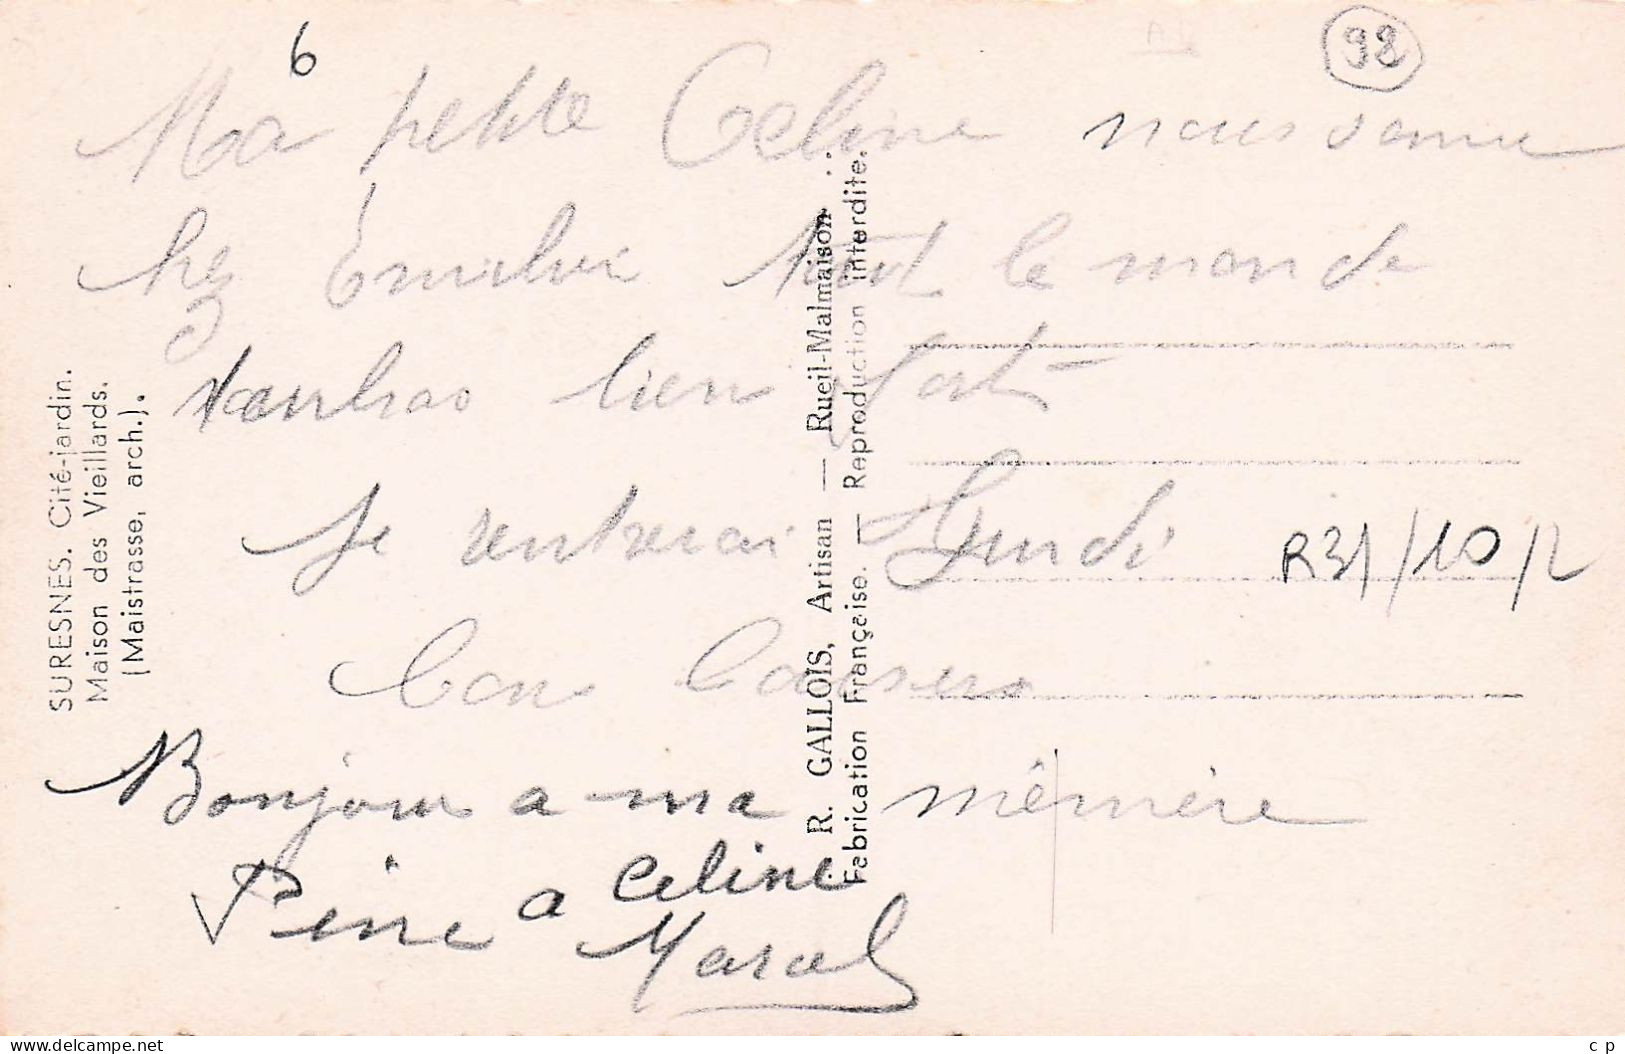 6
98
Ma petite Celine nous somme
chez Emilie tout le monde
bien
Je rentrerai Lundi
Bons Baisers
Bonjour a ma mêmère
Pine a Celine
Marcel
R31/10/2
SURESNES. Cité-jardin.
Maison des Vieillards.
(Maistrasse, arch.).
R. GALLOIS, Artisan — Rueil-Malmaison
Fabrication Française. — Reproduction interdite.
delcampe.net
c p